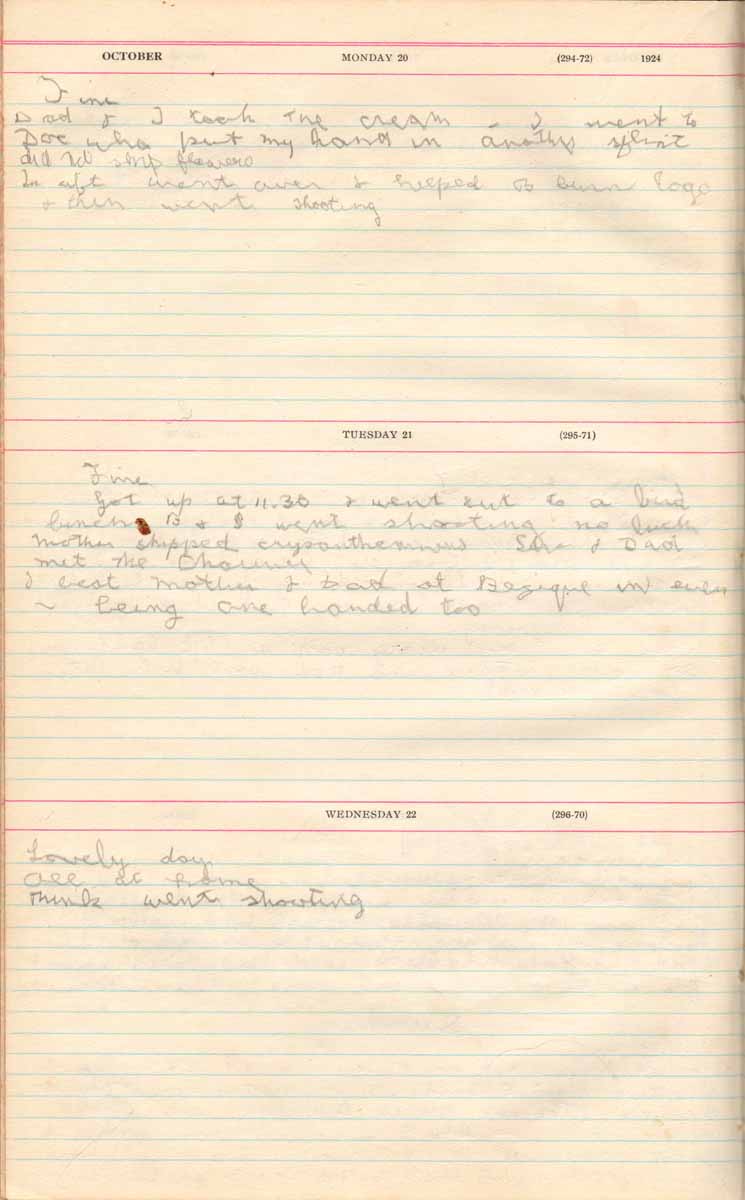 OCTOBER MONDAY 20 (294-72) 1924
Fine
Dad & I took the cream - I went to
Doc who put my hand in another splint
did not ship flowers
In aft went over & helped B burn logs
& then went shooting
TUESDAY 21 (295-71)
Fine
Got up at 11.30 & went out to a bird
B & I went shooting no luck
Mother shipped crysanthemums & Dad
met the
I beat Mother & Dad at Bezique in even
~ being one handed too
WEDNESDAY 22 (296-70)
Lovely day
All at home
Think went shooting